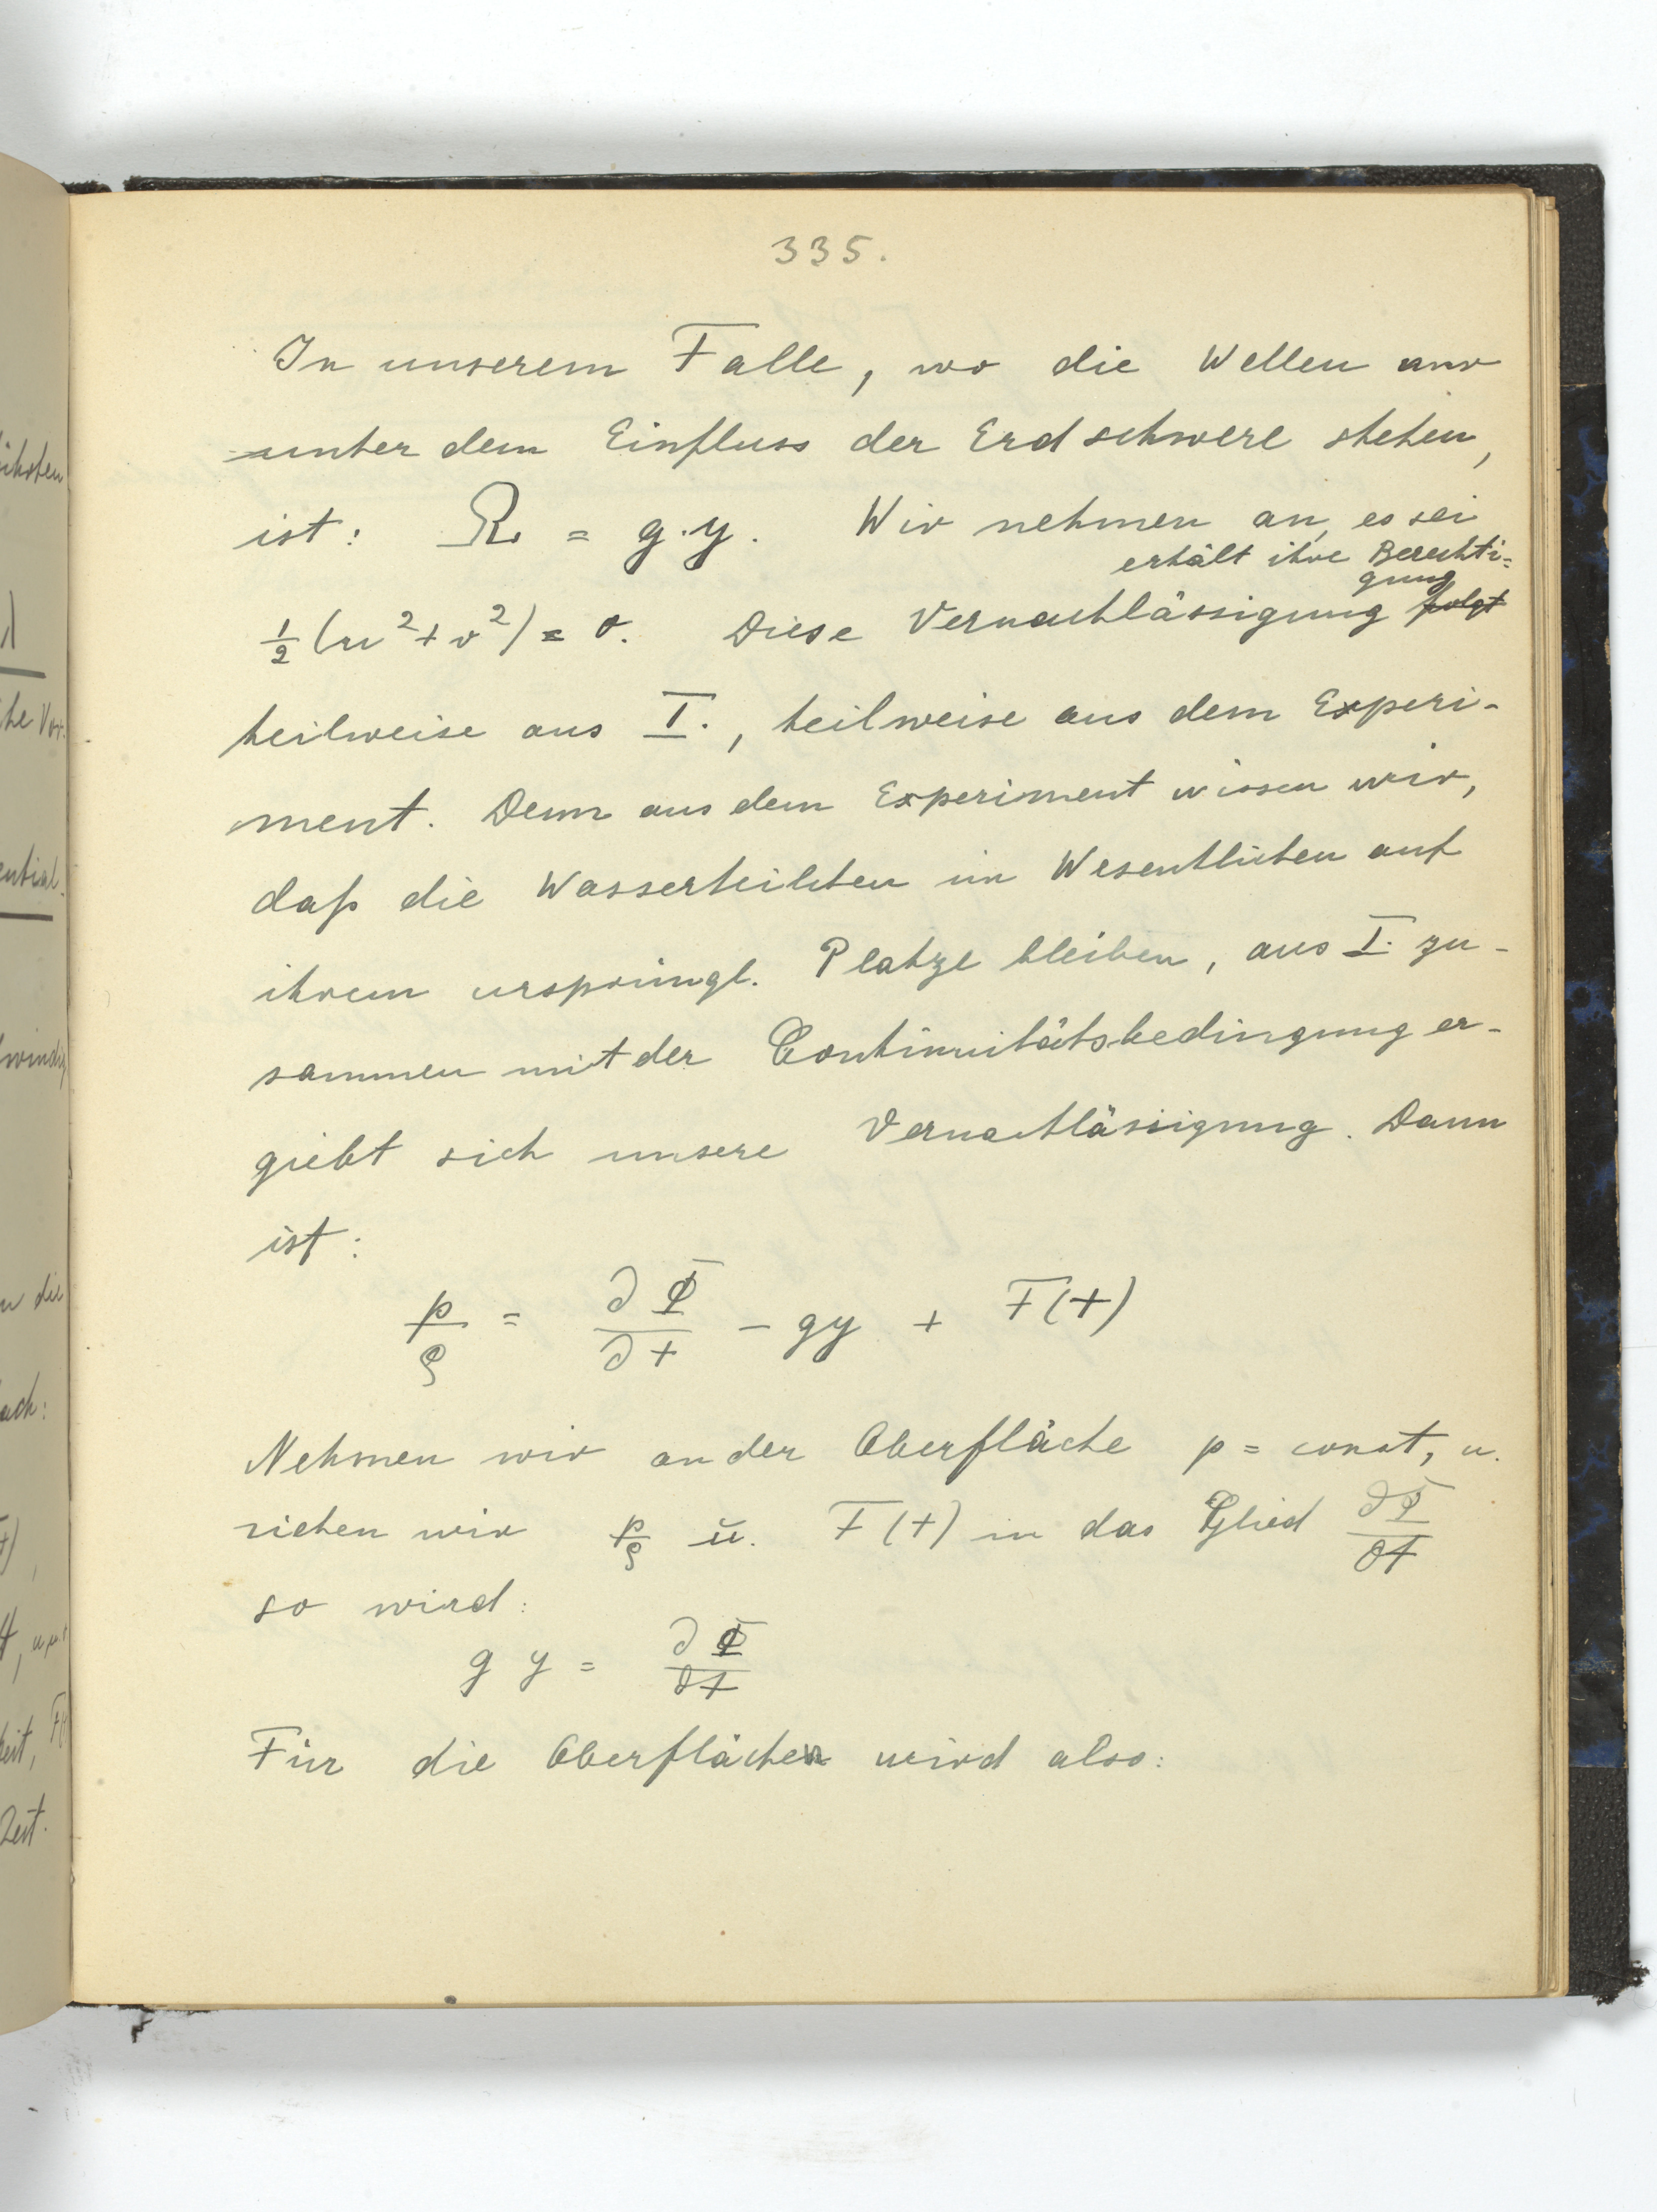 335.
In unserem Falle, wo die Wellen nur
unter dem Einfluss der Erdschwere stehen,
ist: Ω = g·y. Wir nehmen an, es sei
erhält ihre Berechti=
gung
½(u²+v²) = 0. Diese Vernachlässigung folgt
teilweise aus I., teilweise aus dem Experi-
ment. Denn aus dem Experiment wissen wir,
daß die Wasserteilchen im Wesentlichen auf
ihrem ursprüngl. Platze bleiben, aus I. zu-
sammen mit der Continuitätsbedingung er-
giebt sich unsere Vernachlässigung. Dann
ist:
p/ρ = ∂Φ/∂t − gy + F(t)
Nehmen wir an der Oberfläche p = const, u.
ziehen wir p/ρ u. F(t) in das Glied ∂Φ/∂t
so wird:
g y = ∂Φ/∂t
Für die Oberfläche wird also: